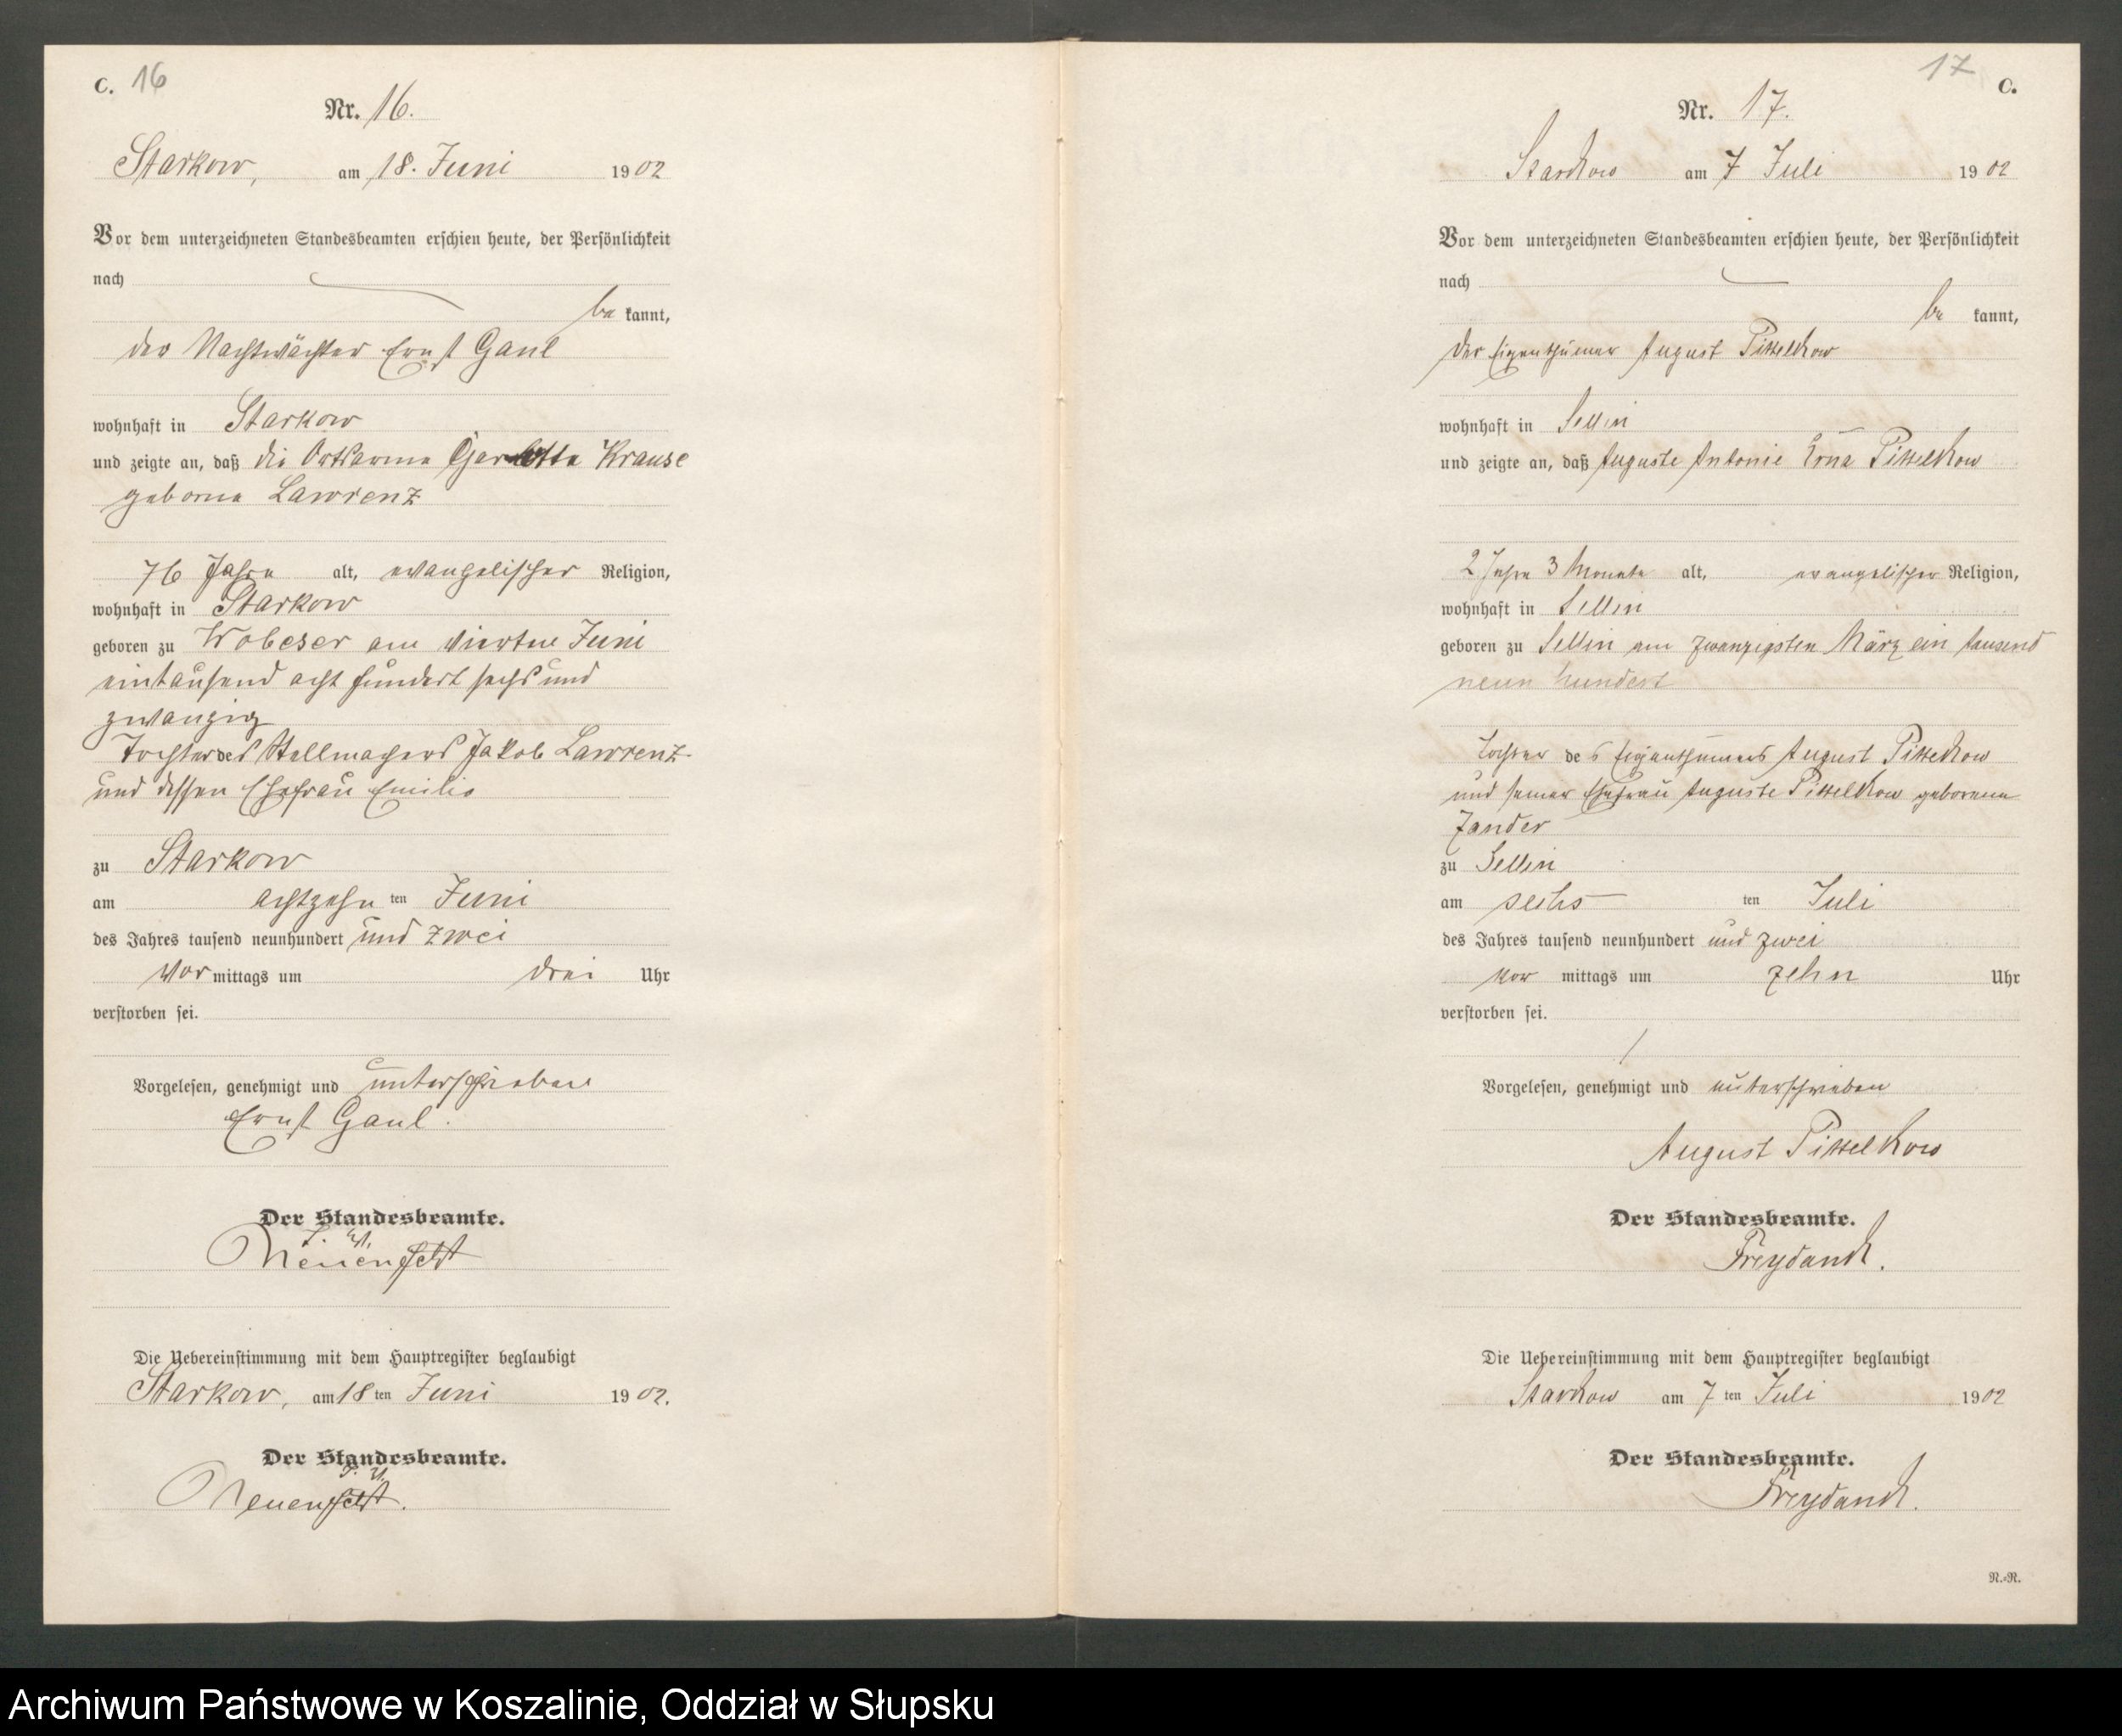 C. 16
Nr. 16.
Starkow, am 18. Juni 1902
Vor dem unterzeichneten Standesbeamten erschien heute, der Persönlichkeit
nach
be kannt,
der Nachtwächter Ernst Gaul
wohnhaft in Starkow
und zeigte an, daß die Ortsarme Krause
geborne Lawrenz
76 Jahre alt, evangelischer Religion,
wohnhaft in Starkow
geboren zu Wobeser am vierten Juni
eintausend acht hundert sechs und
zwanzig
Tochter des Stellmachers Jakob Lawrenz
und dessen Ehefrau Emilie
zu Starkow
am achtzehn ten Juni
des Jahres tausend neunhundert und zwei
Vor mittags um drei Uhr
verstorben sei.
Vorgelesen, genehmigt und unterschrieben
Ernst Gaul.
Der Standesbeamte.
Die Uebereinstimmung mit dem Hauptregister beglaubigt
Starkow, am 18 ten Juni 1902.
Der Standesbeamte.
17 C.
Nr. 17.
Starkow am 7 Juli 1902
Vor dem unterzeichneten Standesbeamten erschien heute, der Persönlichkeit
nach
be kannt,
der Eigenthümer August Pittelkow
wohnhaft in Sellin
und zeigte an, daß Auguste Antonie Erna Pittelkow
2 Jahre 3 Monate alt, evangelischer Religion,
wohnhaft in Sellin
geboren zu Sellin am zwanzigsten März ein tausend
neun hundert
Tochter des Eigenthümers August Pittelkow
und seiner Ehefrau Auguste Pittelkow geborene
Zander
zu Sellin
am sechs ten Juli
des Jahres tausend neunhundert und zwei
vor mittags um zehn Uhr
verstorben sei.
Vorgelesen, genehmigt und unterschrieben
August Pittelkow
Der Standesbeamte.
Freydanck.
Die Uebereinstimmung mit dem Hauptregister beglaubigt
Starkow am 7 ten Juli 1902
Der Standesbeamte.
Freydanck.
N.-N.
Archiwum Państwowe w Koszalinie, Oddział w Słupsku